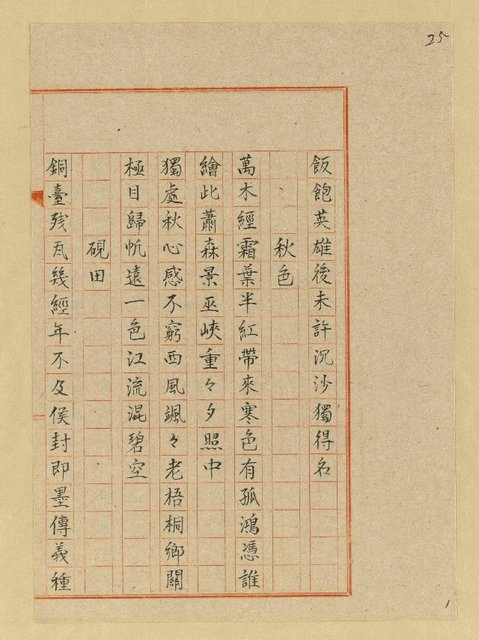 25
飯飽英雄後未許沉沙獨得名
秋色
萬木經霜葉半紅帶來寒色有孤鴻憑誰
繪此蕭森景巫峽重々夕照中
獨處秋心感不窮西風颯々老梧桐鄉關
極目歸帆遠一色江流混碧空
硯田
銅臺殘瓦幾經年不及侯封即墨傳義種
1